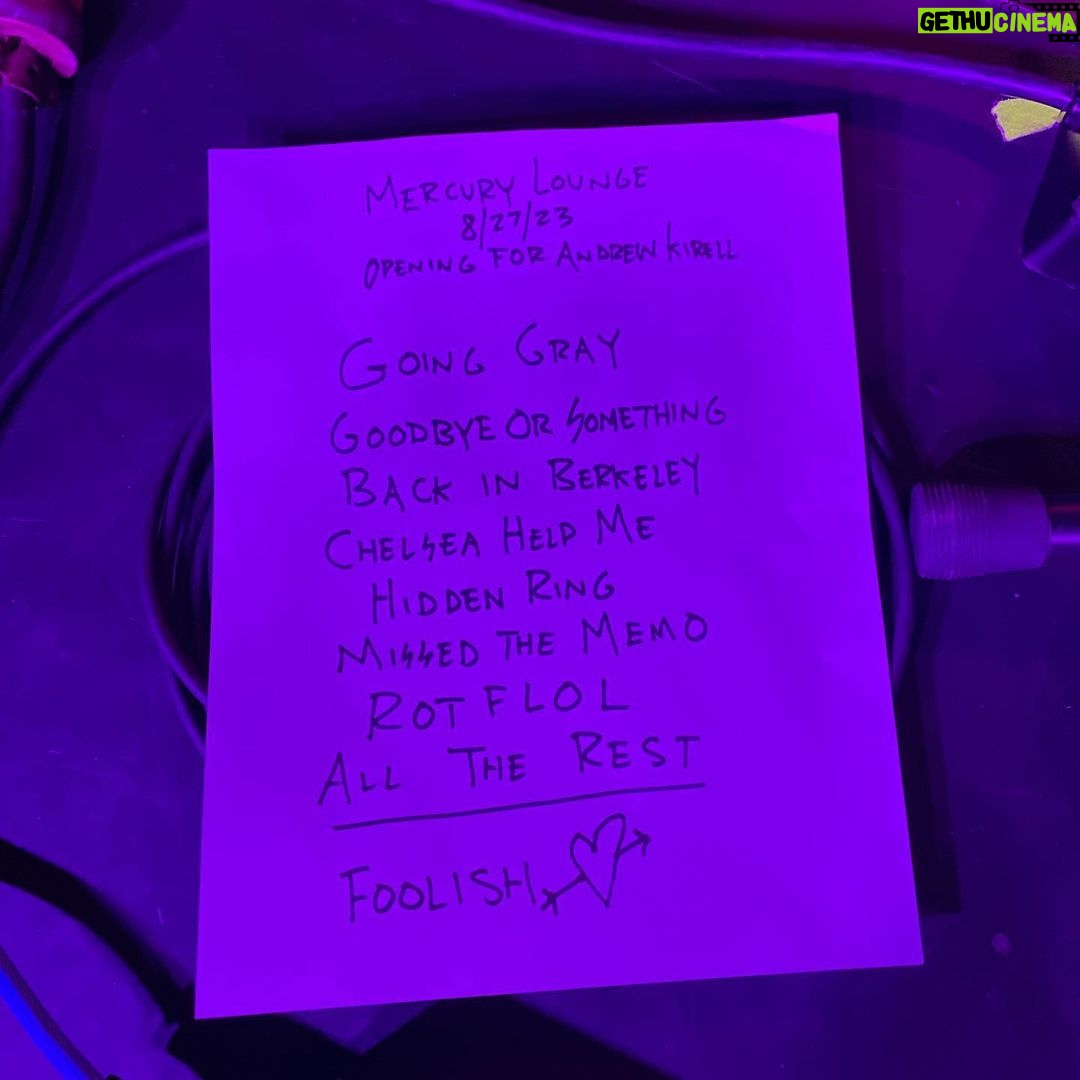 GETHUCINEMA
MERCURY LOUNGE
8/27/23
OPENING FOR ANDREW KIRELL
GOING GRAY
GOODBYE OR SOMETHING
BACK IN BERKELEY
CHELSEA HELP ME
HIDDEN RING
MISSED THE MEMO
ROTFLOL
ALL THE REST
FOOLISH